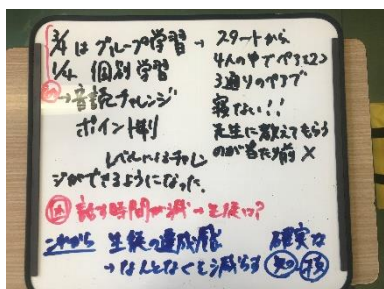 3/4はグループ学習→
1/4 個別学習
→音読チャレンジ
ポイント制
レベルによるチャレ
ンジができるようになった。
スタートから
4人の中でペア1 2 3
3通りのペアで
寝ない!!
先生に教えてもらう
のが当たり前 ×
話す時間が減→生徒は?
これから 生徒の達成感
→なんとなくを減らす
確実な
知 技